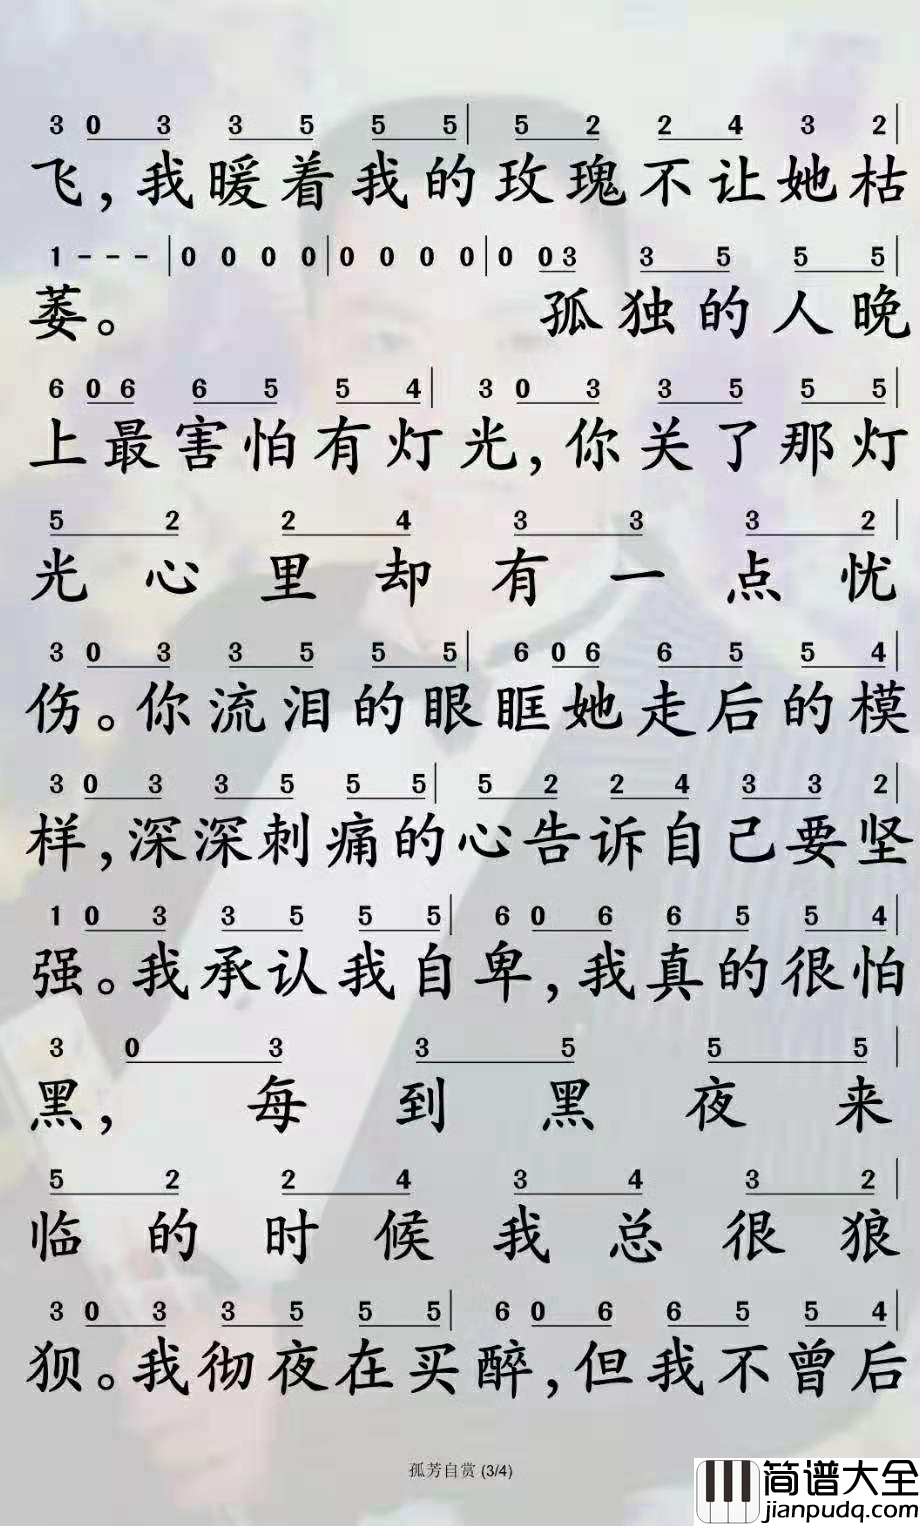 3 0 3 3 5 5 5 | 5 2 2 4 3 2 |
飞,我暖着我的玫瑰不让她枯
1 - - - | 0 0 0 0 | 0 0 0 0 | 0 0 3 3 5 5 5 |
萎。 孤独的人晚
6 0 6 6 5 5 4 | 3 0 3 3 5 5 5 |
上最害怕有灯光,你关了那灯
5 2 2 4 3 3 3 2 |
光心里却有一点忧
3 0 3 3 5 5 5 | 6 0 6 6 5 5 4 |
伤。你流泪的眼眶她走后的模
3 0 3 3 5 5 5 | 5 2 2 4 3 3 2 |
样,深深刺痛的心告诉自己要坚
1 0 3 3 5 5 5 | 6 0 6 6 5 5 4 |
强。我承认我自卑,我真的很怕
3 0 3 3 5 5 5 |
黑,每到黑夜来
5 2 2 4 3 4 3 2 |
临的时候我总很狼
3 0 3 3 5 5 5 | 6 0 6 6 5 5 4 |
狈。我彻夜在买醉,但我不曾后
孤芳自赏 (3/4)
简谱大全
jianpudq.com